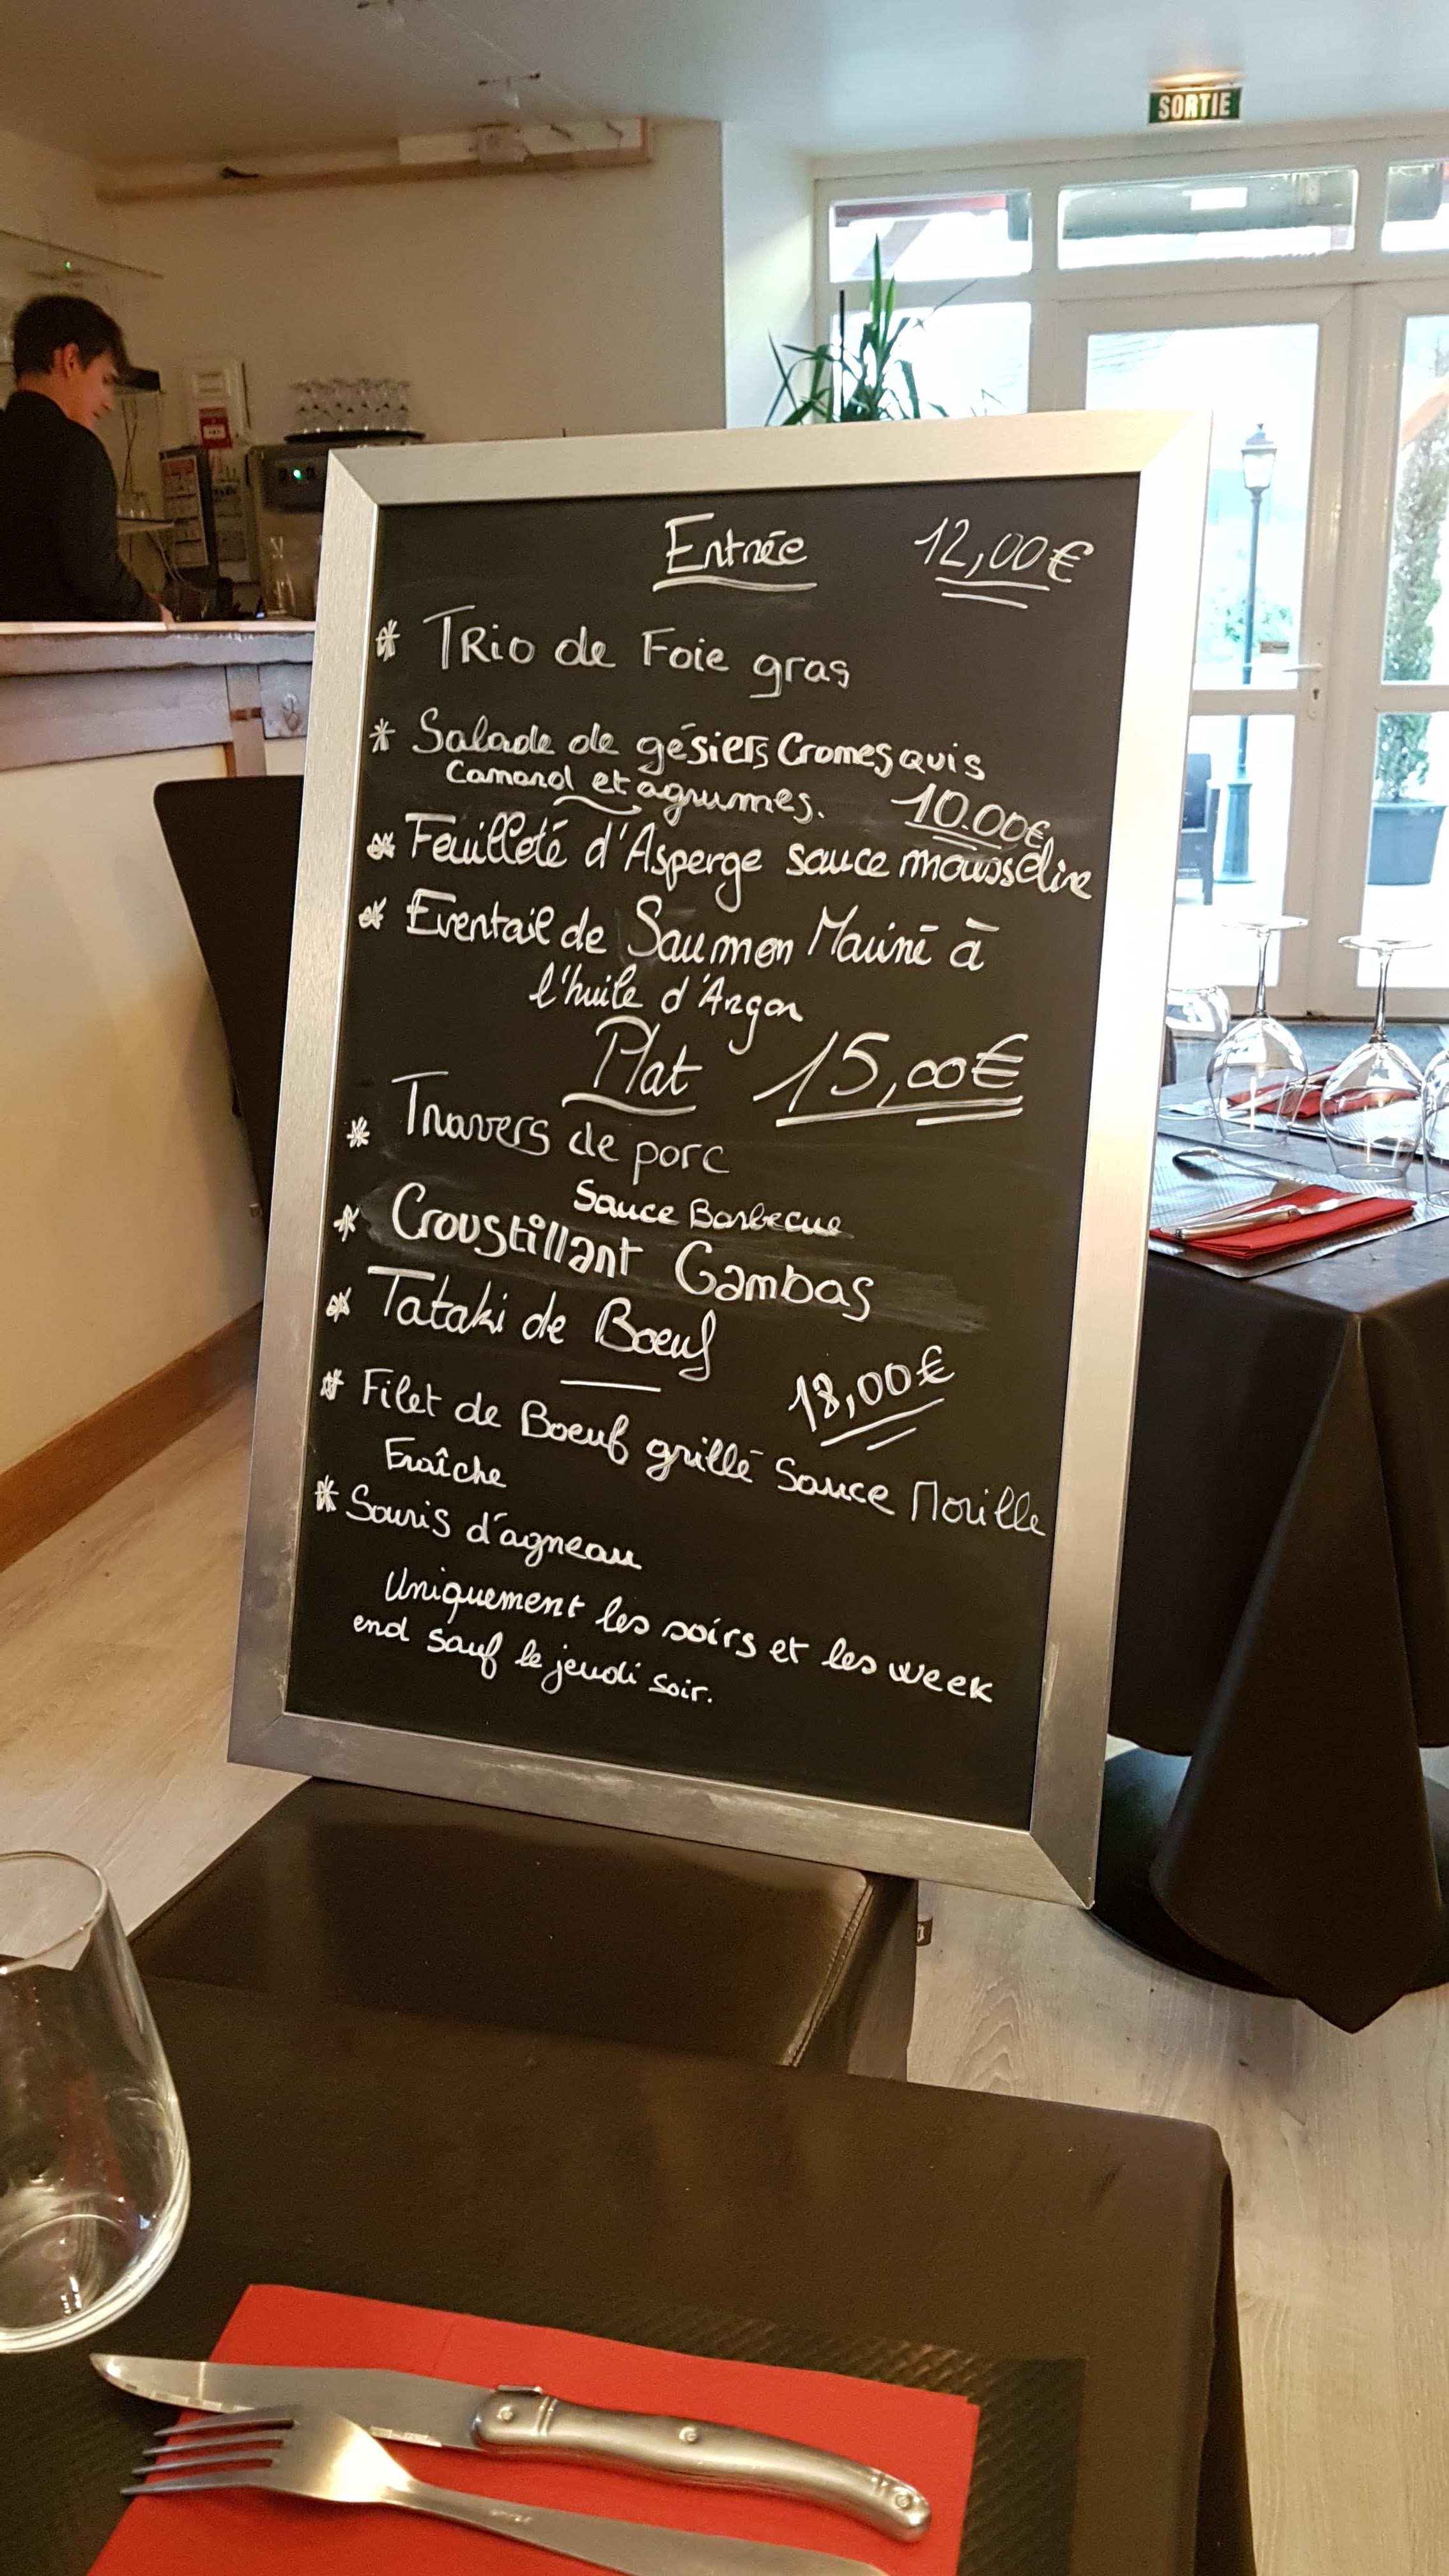 SORTIE
Entrée 12,00€
* Trio de Foie gras
* Salade de gésiers Cromesquis
Camand et agrumes. 10.00€
* Feuilleté d'Asperge sauce mousseline
* Eventail de Saumon Mariné à
l'huile d'Argan
Plat 15,00€
* Travers de porc
Sauce Barbecue
* Croustillant Gambas
* Tataki de Boeuf
18,00€
* Filet de Boeuf grillé Sauce Morille
Fraîche
* Souris d'agneau
Uniquement les soirs et les week
end sauf le jeudi soir.